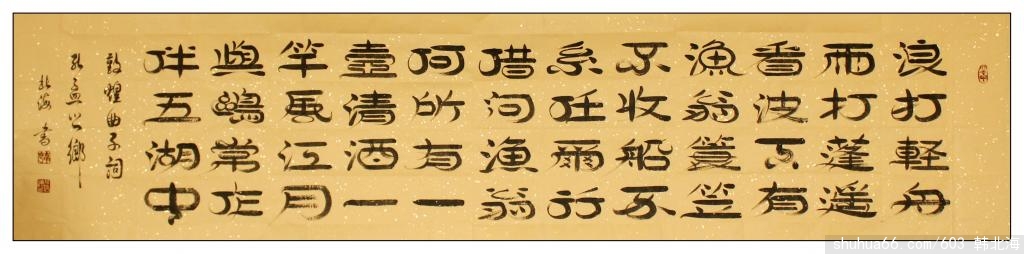 浪打軽舟
雨打蓬遥
看波下有
漁翁蓑笠
不收船不
系任爾行
借问漁翁
何所有一
壺清酒一
竿風江月
與鷗常作
伴五湖中
敦煌曲子詞
孔孟之鄉
北海書
shuhua66.com/603 韩北海